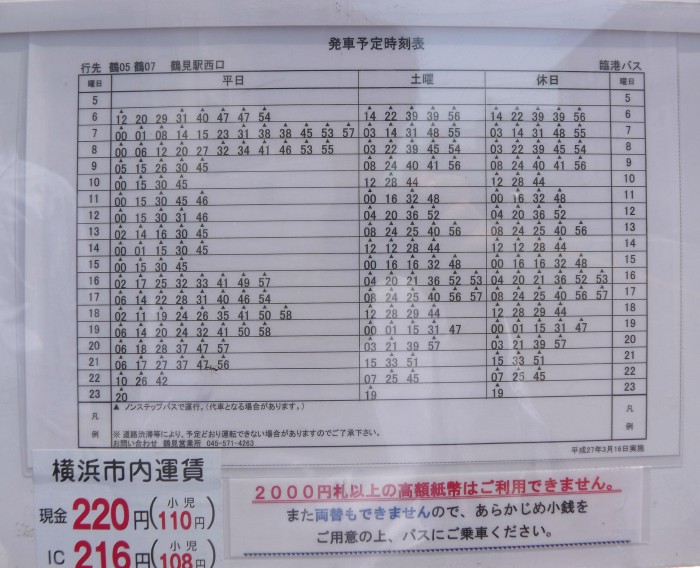 発車予定時刻表
行先 鶴05 鶴07 鶴見駅西口 臨港バス
曜日 平日 土曜 休日 曜日
5 5
6 12 20 29 31 40 47 47 54 14 22 39 39 56 14 22 39 39 56 6
7 00 01 08 14 15 23 31 38 38 45 53 57 03 14 31 48 55 03 14 31 48 55 7
8 00 06 12 20 27 32 34 41 46 53 55 03 22 39 45 54 03 22 39 45 54 8
9 05 15 26 30 45 08 24 40 41 56 08 24 40 41 56 9
10 00 15 30 45 12 28 44 12 28 44 10
11 00 15 30 45 46 00 16 32 48 00 16 32 48 11
12 00 15 30 31 46 04 20 36 52 04 20 36 52 12
13 02 14 16 30 45 08 24 25 40 56 08 24 25 40 56 13
14 00 01 15 30 45 12 12 28 44 12 12 28 44 14
15 00 15 30 45 00 16 16 32 48 00 16 16 32 48 15
16 02 17 25 32 33 41 49 57 04 20 21 36 52 53 04 20 21 36 52 53 16
17 06 14 22 28 31 40 46 54 08 24 25 40 56 57 08 24 25 40 56 57 17
18 02 11 19 24 26 35 41 50 58 12 28 29 44 12 28 29 44 18
19 06 14 20 24 32 41 50 58 00 01 15 31 47 00 01 15 31 47 19
20 06 18 28 37 47 57 03 21 39 57 03 21 39 57 20
21 06 17 27 37 47 56 15 33 51 15 33 51 21
22 10 26 42 07 25 45 07 25 45 22
23 20 19 19 23
凡例 ▲ ノンステップバスで運行。(代車となる場合があります。) 凡例
※ 道路渋滞等により、予定どおり運転できない場合がありますのでご了承下さい。
お問い合わせ 鶴見営業所 045-571-4263
平成27年3月16日実施
横浜市内運賃
現金 220円(小児110円)
IC 216円(小児108円)
2000円札以上の高額紙幣はご利用できません。
また両替もできませんので、あらかじめ小銭を
ご用意の上、バスにご乗車ください。